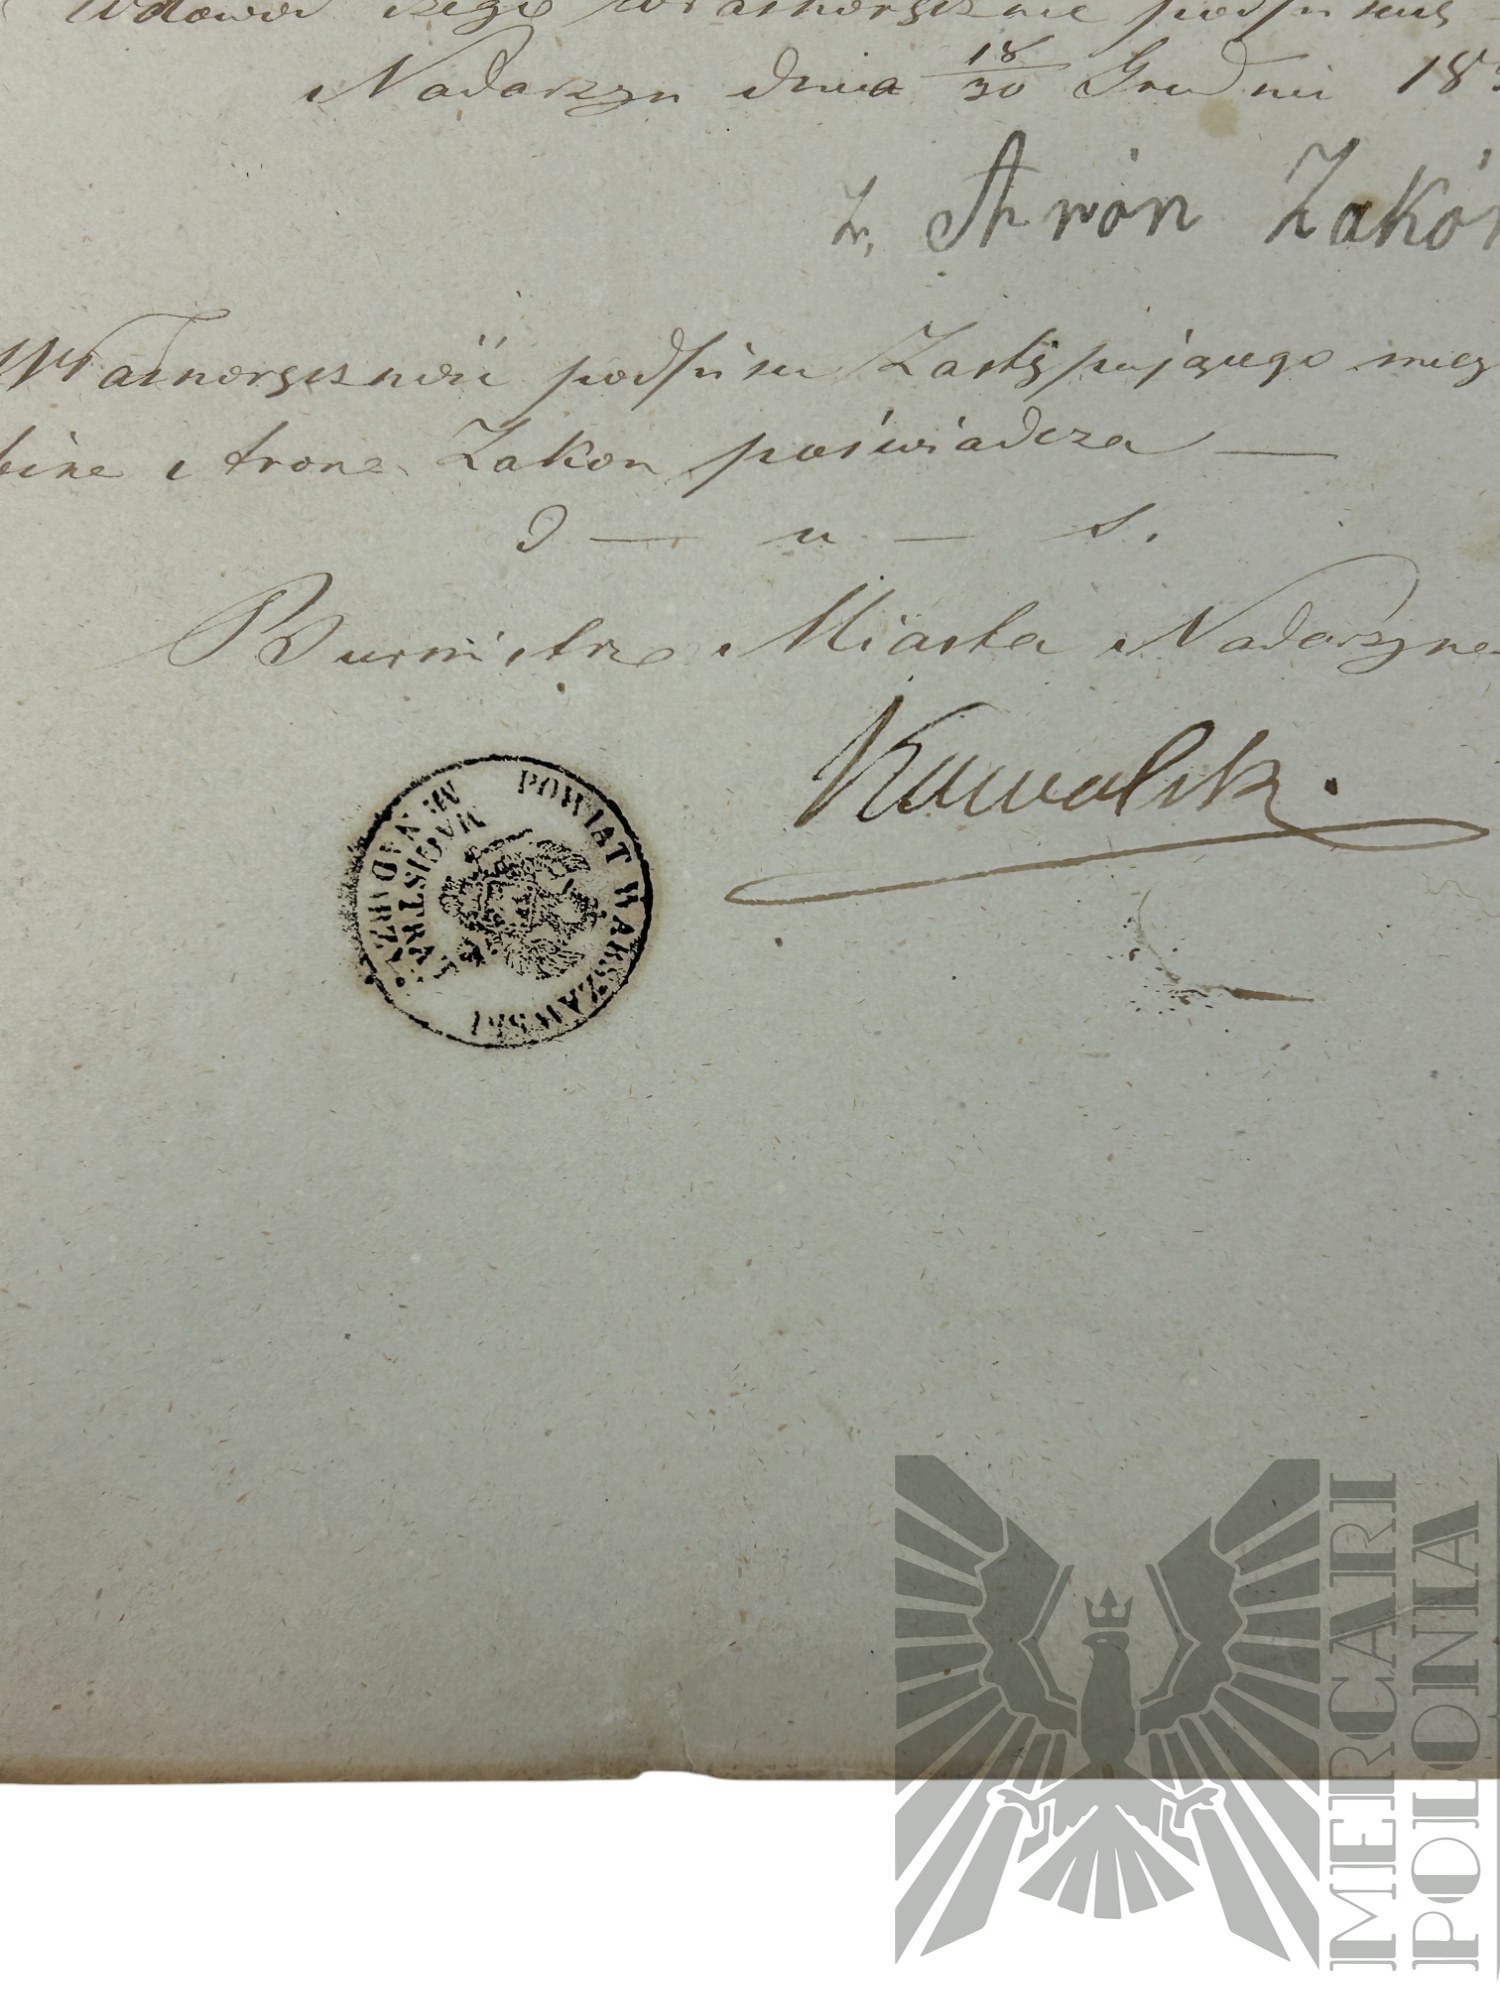 Własnoręcznie podpisuję
Nadarzyn dnia 18/30 Grudnia 18
Z. Aron Zakon
Własnoręczność podpisu Zastępującego miey
Arona Zakon poświadcza —
D — u — S.
Burmistrz Miasta Nadarzyna
Kowalski.
POWIAT WARSZAWSKI
MAGISTRAT
M. NADARZYN
MERCARI
POLONIA